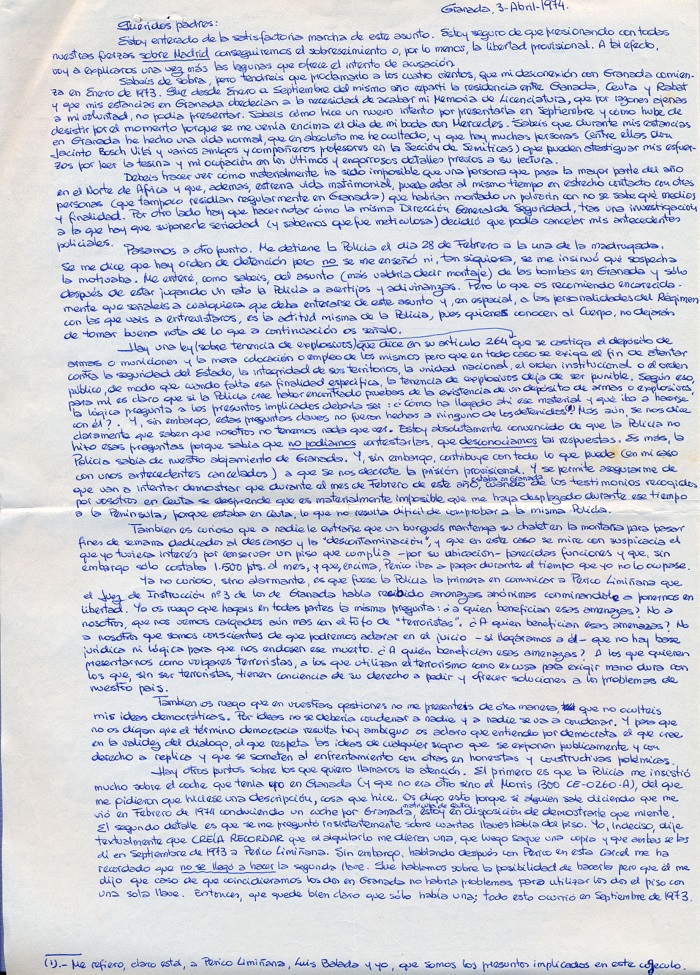 Granada, 3-Abril-1974.
Queridos padres:
Estoy enterado de la satisfactoria marcha de este asunto. Estoy seguro de que presionando con todas
nuestras fuerzas sobre Madrid conseguiremos el sobreseimiento o, por lo menos, la libertad provisional. A tal efecto,
voy a explicaros una vez más las lagunas que ofrece el intento de acusación.
Sabeis de sobra, pero tendreis que proclamarlo a los cuatro vientos, que mi desconexión con Granada comien-
za en Enero de 1973. Que desde Enero a Septiembre del mismo año repartí la residencia entre Granada, Ceuta y Rabat
y que mis estancias en Granada obedecían a la necesidad de acabar mi Memoria de Licenciatura, que por razones ajenas
a mi voluntad, no podía presentar. Sabeis cómo hice un nuevo intento por presentarla en Septiembre y cómo hube de
desistir por el momento porque se me venía encima el día de mi boda con Mercedes. Sabeis que durante mis estancias
en Granada he hecho una vida normal, que en absoluto me he ocultado, y que hay muchas personas (entre ellas Don
Jacinto Bosch Vilá y varios amigos y compañeros profesores en la Sección de Semíticas) que pueden atestiguar mis esfuer-
zos por leer la tesina y mi ocupación en los últimos y engorrosos detalles previos a su lectura.
Debeis hacer ver cómo materialmente ha sido imposible que una persona que pasa la mayor parte del año
en el Norte de Africa y que, además, estrena vida matrimonial, pueda estar al mismo tiempo en estrecho contacto con otras
personas (que tampoco residían regularmente en Granada) que habrían montado un polvorín con no se sabe qué medios
y finalidad. Por otro lado hay que hacer notar cómo la misma Dirección General de Seguridad, tras una investigación
a la que hay que suponerle seriedad (y sabemos que fue meticulosa) decidió que podía cancelar mis antecedentes
policiales.
Pasamos a otro punto. Me detiene la Policía el día 28 de Febrero a la una de la madrugada.
Se me dice que hay orden de detención pero no se me enseñó ni, tan siquiera, se me insinuó qué sospecha
la motivaba. Me enteré, como sabeis, del asunto (más valdría decir montaje) de las bombas en Granada y sólo
después de estar jugando un rato la Policía a acertijos y adivinanzas. Pero lo que os recomiendo encarecida-
mente que señaleis a cualquiera que deba enterarse de este asunto y, en especial, a las personalidades del Régimen
con las que vais a entrevistaros, es la actitud misma de la Policía, pues quienes conocen al Cuerpo, no dejarán
de tomar buena nota de lo que a continuación os señalo.
Hay una ley (sobre tenencia de explosivos) que dice en su artículo 264 que se castiga el depósito de
armas o municiones y la mera colocación o empleo de los mismos pero que en todo caso se exige el fin de atentar
contra la seguridad del Estado, la integridad de sus territorios, la unidad nacional, el orden institucional o el orden
público, de modo que cuando falta esa finalidad específica, la tenencia de explosivos deja de ser punible. Según eso,
para mí es claro que si la Policía cree haber encontrado pruebas de la existencia de un depósito de armas o explosivos,
la lógica pregunta a los presuntos implicados debería ser: ¿cómo ha llegado ahí ese material y qué iba a hacerse
con él?. Y, sin embargo, estas preguntas claves no fueron hechas a ninguno de los detenidos(1) Más aún, se nos dice
claramente que saben que nosotros no tenemos nada que ver. Estoy absolutamente convencido de que la Policía no
hizo esas preguntas porque sabía que no podíamos contestarlas, que desconocíamos las respuestas. Es más, la
Policía sabía de nuestro alojamiento de Granada. Y, sin embargo, contribuye con todo lo que puede (en mi caso
con unos antecedentes cancelados) a que se nos decrete la prisión provisional. Y se permite asegurarme de
que van a intentar demostrar que durante el mes de Febrero de este año estaba en Granada, cuando de los testimonios recogidos
por vosotros en Ceuta se desprende que es materialmente imposible que me haya desplazado durante ese tiempo
a la Península, porque estaba en Ceuta, lo que no resulta difícil de comprobar a la misma Policía.
Tambien es curioso que a nadie le extrañe que un burgués mantenga su chalet en la montaña para pasar
fines de semana dedicados al descanso y la "descontaminación", y que en este caso se mire con suspicacia el
que yo tuviera interés por conservar un piso que cumplía -por su ubicación- parecidas funciones y que, sin
embargo sólo costaba 1.500 pts. al mes, y que, encima, Perico iba a pagar durante el tiempo que yo no lo ocupase.
Ya no curioso, sino alarmante, es que fuese la Policía la primera en comunicar a Perico Limiñana que
el Juez de Instrucción nº 3 de los de Granada había recibido amenazas anónimas conminándole a ponernos en
libertad. Yo os ruego que hagais en todas partes la misma pregunta: ¿a quien benefician esas amenazas? No a
nosotros, que nos vemos cargados aún mas con el tufo de "terroristas". ¿A quien benefician esas amenazas? No
a nosotros que somos conscientes de que podremos aclarar en el juicio -si llegáramos a él- que no hay base
jurídica ni lógica para que nos endosen ese muerto. ¿A quién benefician esas amenazas? A los que quieren
presentarnos como vulgares terroristas, a los que utilizan el terrorismo como excusa para exigir mano dura con
los que, sin ser terroristas, tienen conciencia de su derecho a pedir y ofrecer soluciones a los problemas de
nuestro país.
Tambien os ruego que en vuestras gestiones no me presenteis de otra manera, que no oculteis
mis ideas democráticas. Por ideas no se debería condenar a nadie y a nadie se va a condenar. Y para que
no os digan que el término democracia resulta hoy ambiguo os aclaro que entiendo por demócrata el que cree
en la validez del diálogo, al que respeta las ideas de cualquier signo que se exponen publicamente y con
derecho a replica y que se someten al enfrentamiento con otras en honestas y constructivas polémicas.
Hay otros puntos sobre los que quiero llamaros la atención. El primero es que la Policía me insistió
mucho sobre el coche que tenía yo en Granada (y que no era otro sino el Morris 1300 CE-0260-A), del que
me pidieron que hiciese una descripción, cosa que hice. Os digo esto porque si alguien sale diciendo que me
vió en Febrero de 1974 conduciendo un coche por Granada, matrícula de Ceuta, estoy en disposición de demostrarle que miente.
El segundo detalle es que se me preguntó insistentemente sobre cuantas llaves había del piso. Yo, indeciso, dije
textualmente que CREÍA RECORDAR que al alquilarlo me dieron una, que luego saqué una copia y que ambas se las
di en Septiembre de 1973 a Perico Limiñana. Sin embargo, hablando después con Perico en esta Carcel me ha
recordado que no se llegó a hacer la segunda llave. Que hablamos sobre la posibilidad de hacerla pero que él me
dijo que caso de que coincidieramos los dos en Granada no habría problemas para utilizar los dos el piso con
una sola llave. Entonces, que quede bien claro que sólo había una; todo esto ocurrió en Septiembre de 1973.
(1).- Me refiero, claro está, a Perico Limiñana, Luis Balada y yo, que somos los presuntos implicados en este